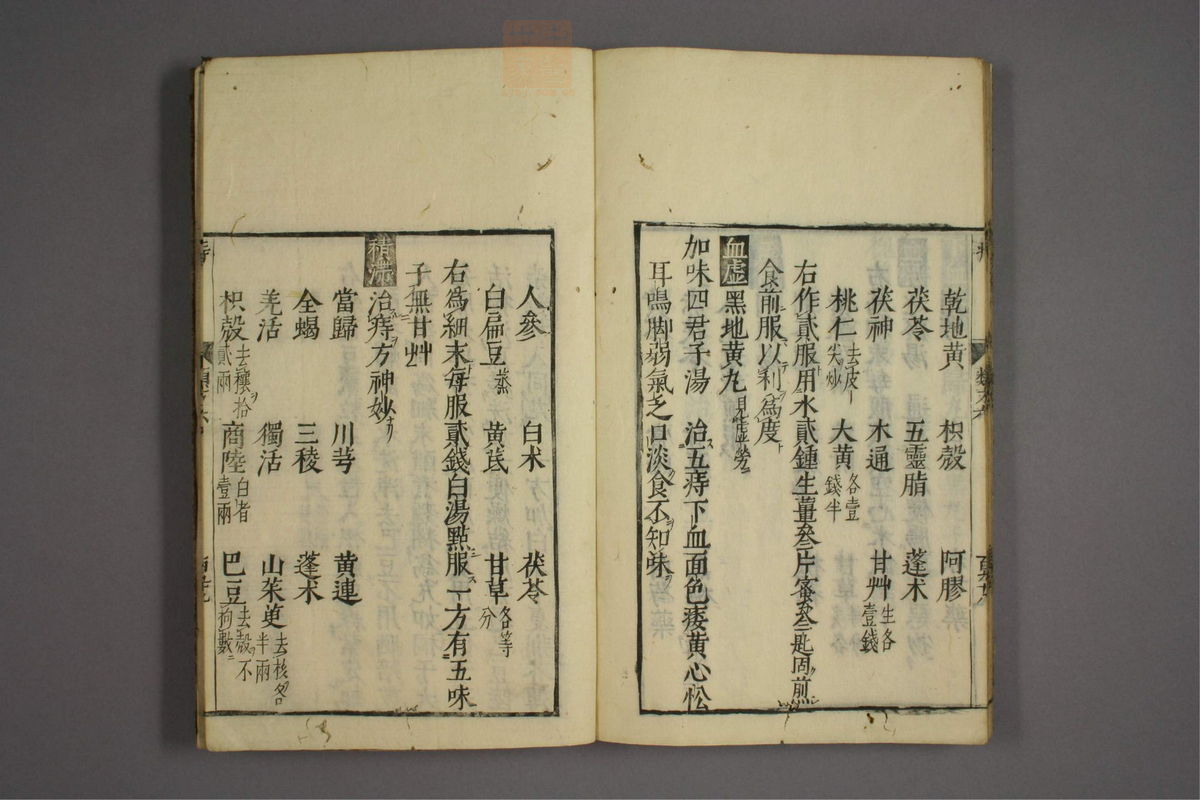 乾地黃 枳殼 阿膠
茯苓 五靈脂 蓬术
茯神 木通 甘艸生各壹錢
桃仁去皮尖炒 大黃各壹錢半
右作貳服用水貳鍾生薑叄片蜜叄匙同煎
食前服以利爲度
血虛 黑地黃丸見虛勞
加味四君子湯 治五痔下血面色痿黃心忪
耳鳴脚弱氣乏口淡食不知味
人參 白术 茯苓
白扁豆蒸 黃茋 甘草各等分
右爲細末每服貳錢白湯點服一方有五味
子無甘艸
積滯 治痔方神妙
當歸 川芎 黃連
全蝎 三稜 蓬术
羌活 獨活 山茱萸去核各半兩
枳殼去穰拾貳兩 商陸白者壹兩 巴豆去殼不拘數